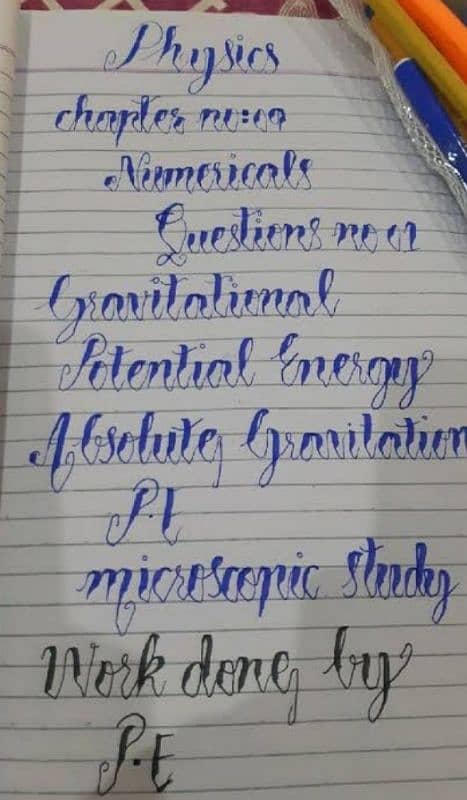 Physics
chapter no:09
Numericals
Questions no 01
Gravitational
Potential Energy
Absolute Gravitation
P.E
microscopic study
Work done by
P.E